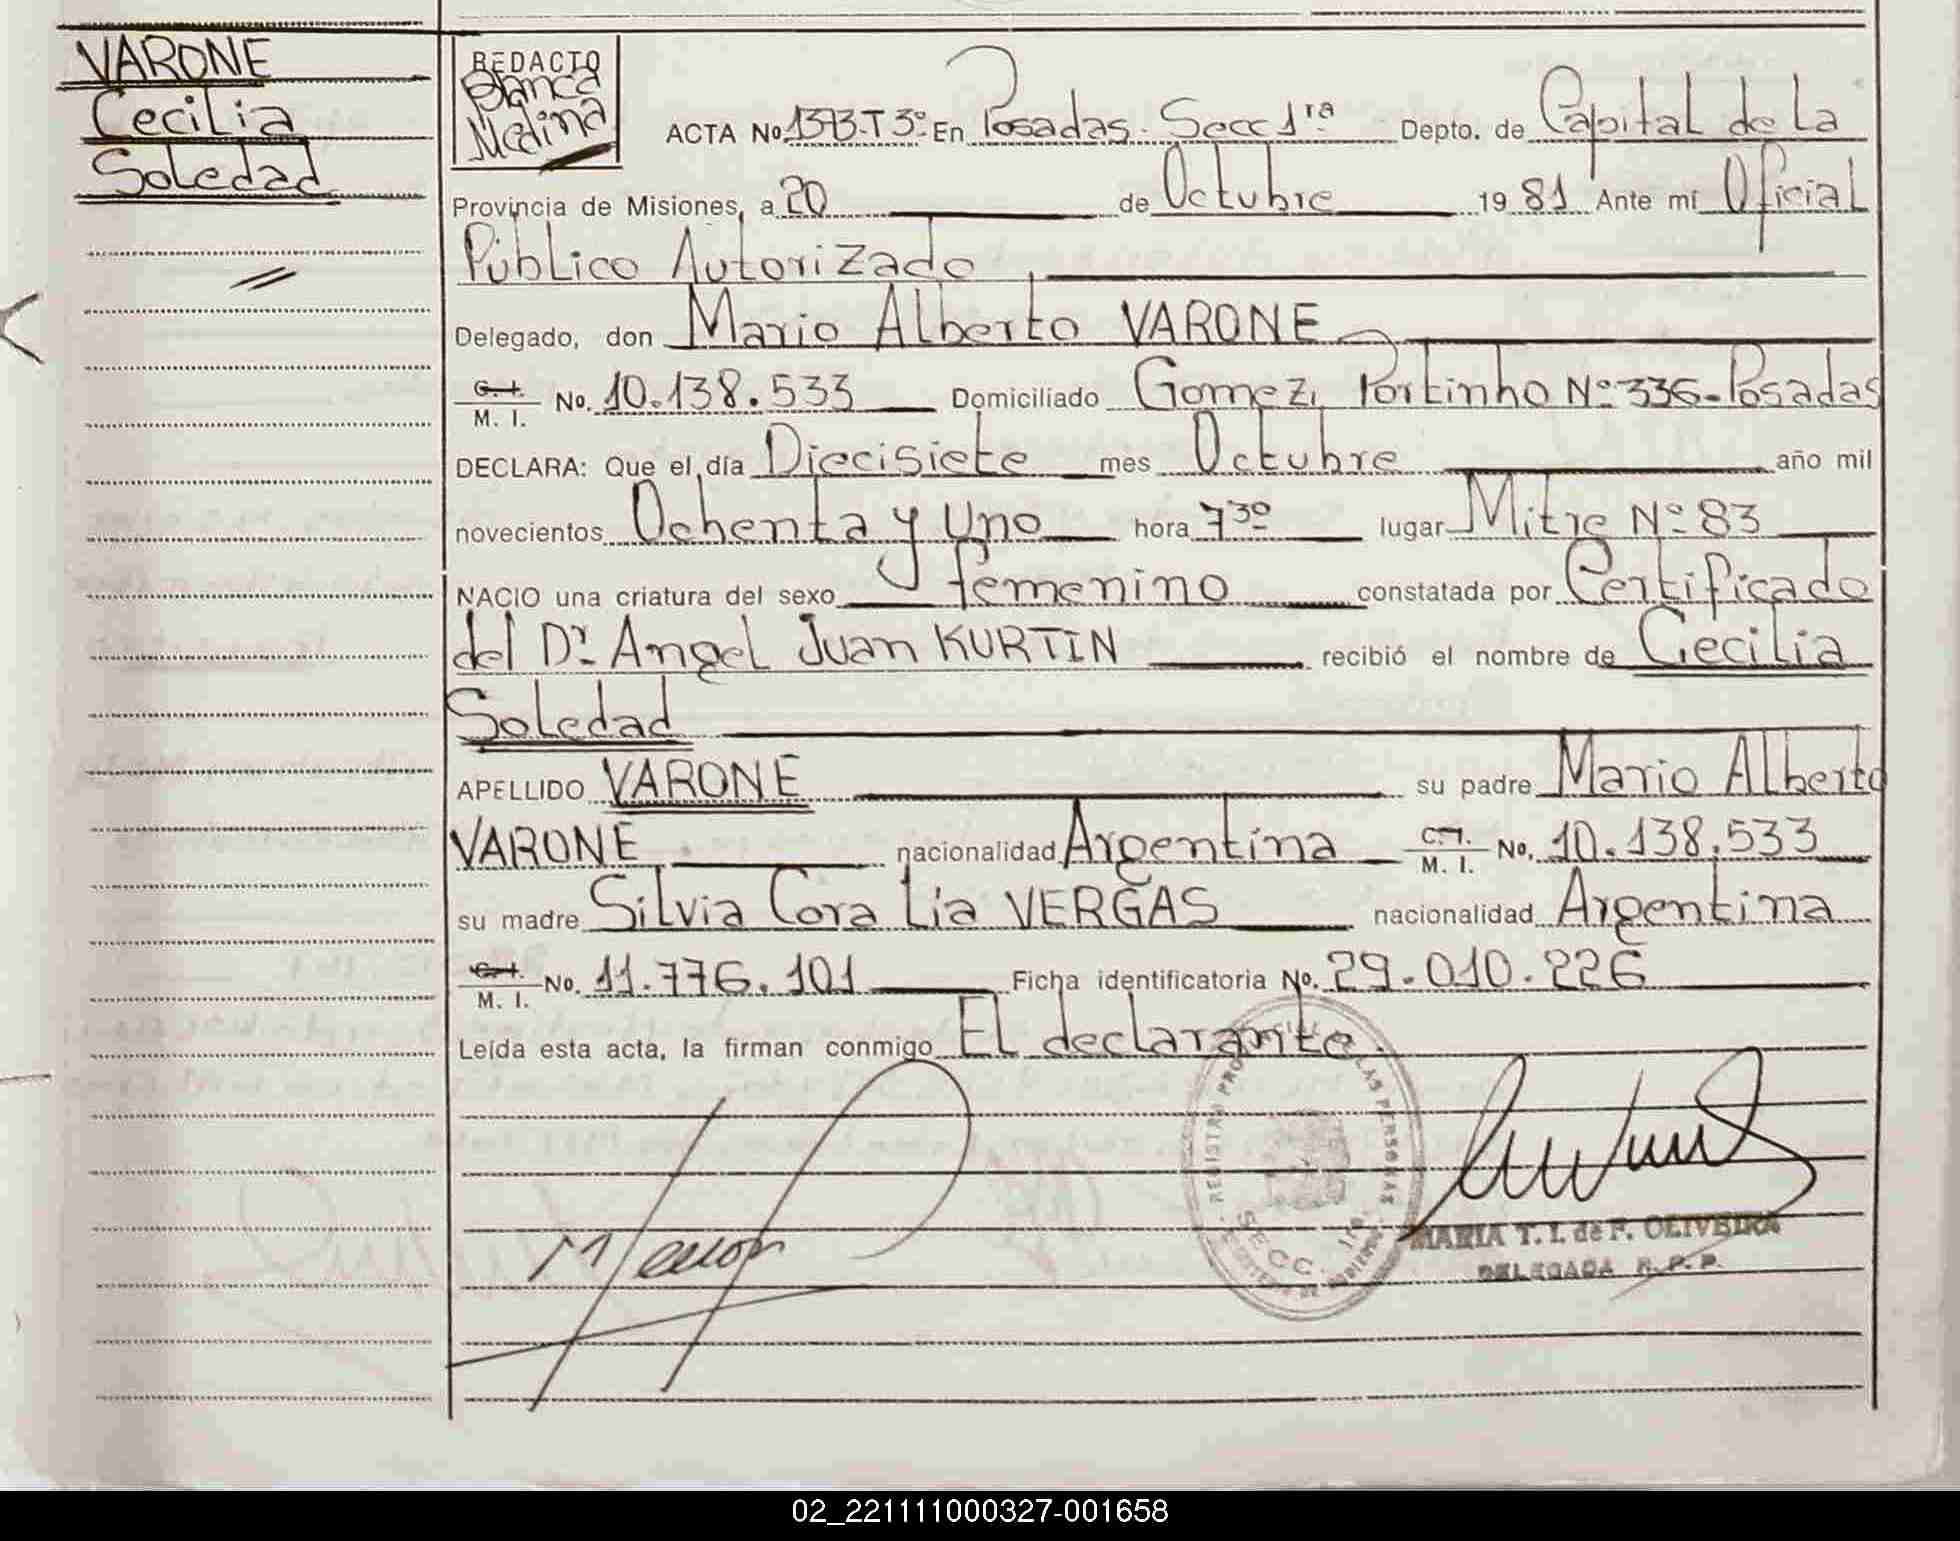 VARONE
Cecilia
Soledad
REDACTO
Blanca
Medina
ACTA No. 1373-T 3º En Posadas. Secc 1ra Depto. de Capital de La
Provincia de Misiones, a 20 de Octubre 19 81 Ante mí Oficial
Público Autorizado
Delegado, don Mario Alberto VARONE
C. I.
M. I. No. 10.138.533 Domiciliado Gomez Portinho Nº 336-Posadas
DECLARA: Que el día Diecisiete mes Octubre año mil
novecientos Ochenta y Uno hora 7 30 lugar Mitre Nº 83
NACIO una criatura del sexo femenino constatada por Certificado
del Dr. Angel Juan KURTIN recibió el nombre de Cecilia
Soledad
APELLIDO VARONE su padre Mario Alberto
VARONE nacionalidad Argentina C.I. M. I. No. 10.138.533
su madre Silvia Cora Lia VERGAS nacionalidad Argentina
C. I.
M. I. No. 11.776.101 Ficha identificatoria No. 29.010.226
Leída esta acta, la firman conmigo El declarante.
REGISTRO LAS PERSONAS
SECC. 1ra
MARIA T. I. de F. OLIVEIRA
DELEGADA R. P. P.
02_221111000327-001658